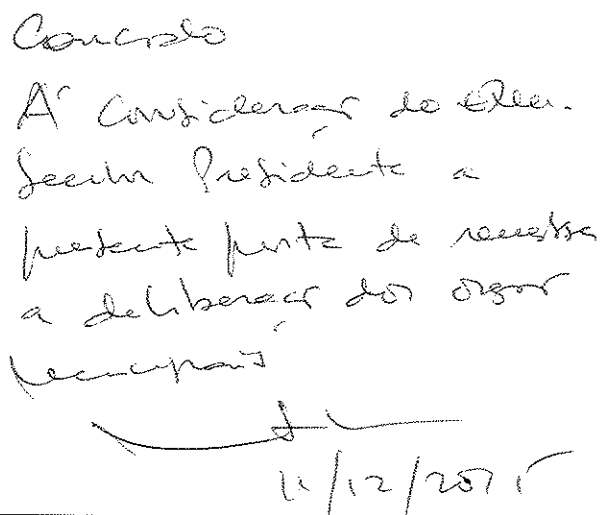 Concordo
À Consideração do Exm.
Senhor Presidente a
presente de remessa
a deliberação dos orgãos
municipais
11/12/2015